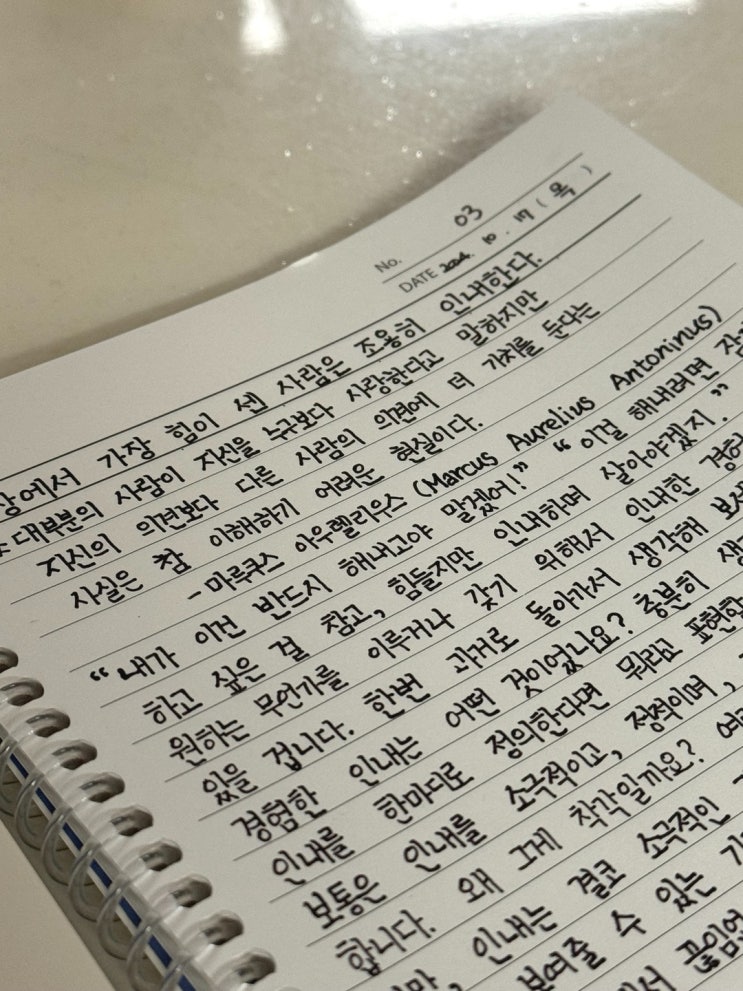 No. 03
DATE 2024. 10. 17 (목)
상에서 가장 힘이 센 사람은 조용히 인내한다.
대부분의 사람이 자신을 누구보다 사랑한다고 말하지만
자신의 의견보다 다른 사람의 의견에 더 가치를 둔다는
사실은 참 이해하기 어려운 현실이다.
- 마르쿠스 아우렐리우스 (Marcus Aurelius Antoninus)
"내가 이건 반드시 해내고야 말겠어!" "이걸 해내려면
하고 싶은 걸 참고, 힘들지만 인내하며 살아야겠지."
원하는 무언가를 이루거나 갖기 위해서 인내한
있을 겁니다. 한번 과거로 돌아가서 생각해
경험한 인내는 어떤 것이었나요? 충분히
인내를 한마디로 정의한다면 뭐라고
보통은 인내를 소극적이고, 정적이며,
합니다. 왜 그게 착각일까요?
인내는 결코 소극적인
보여줄 수 있는